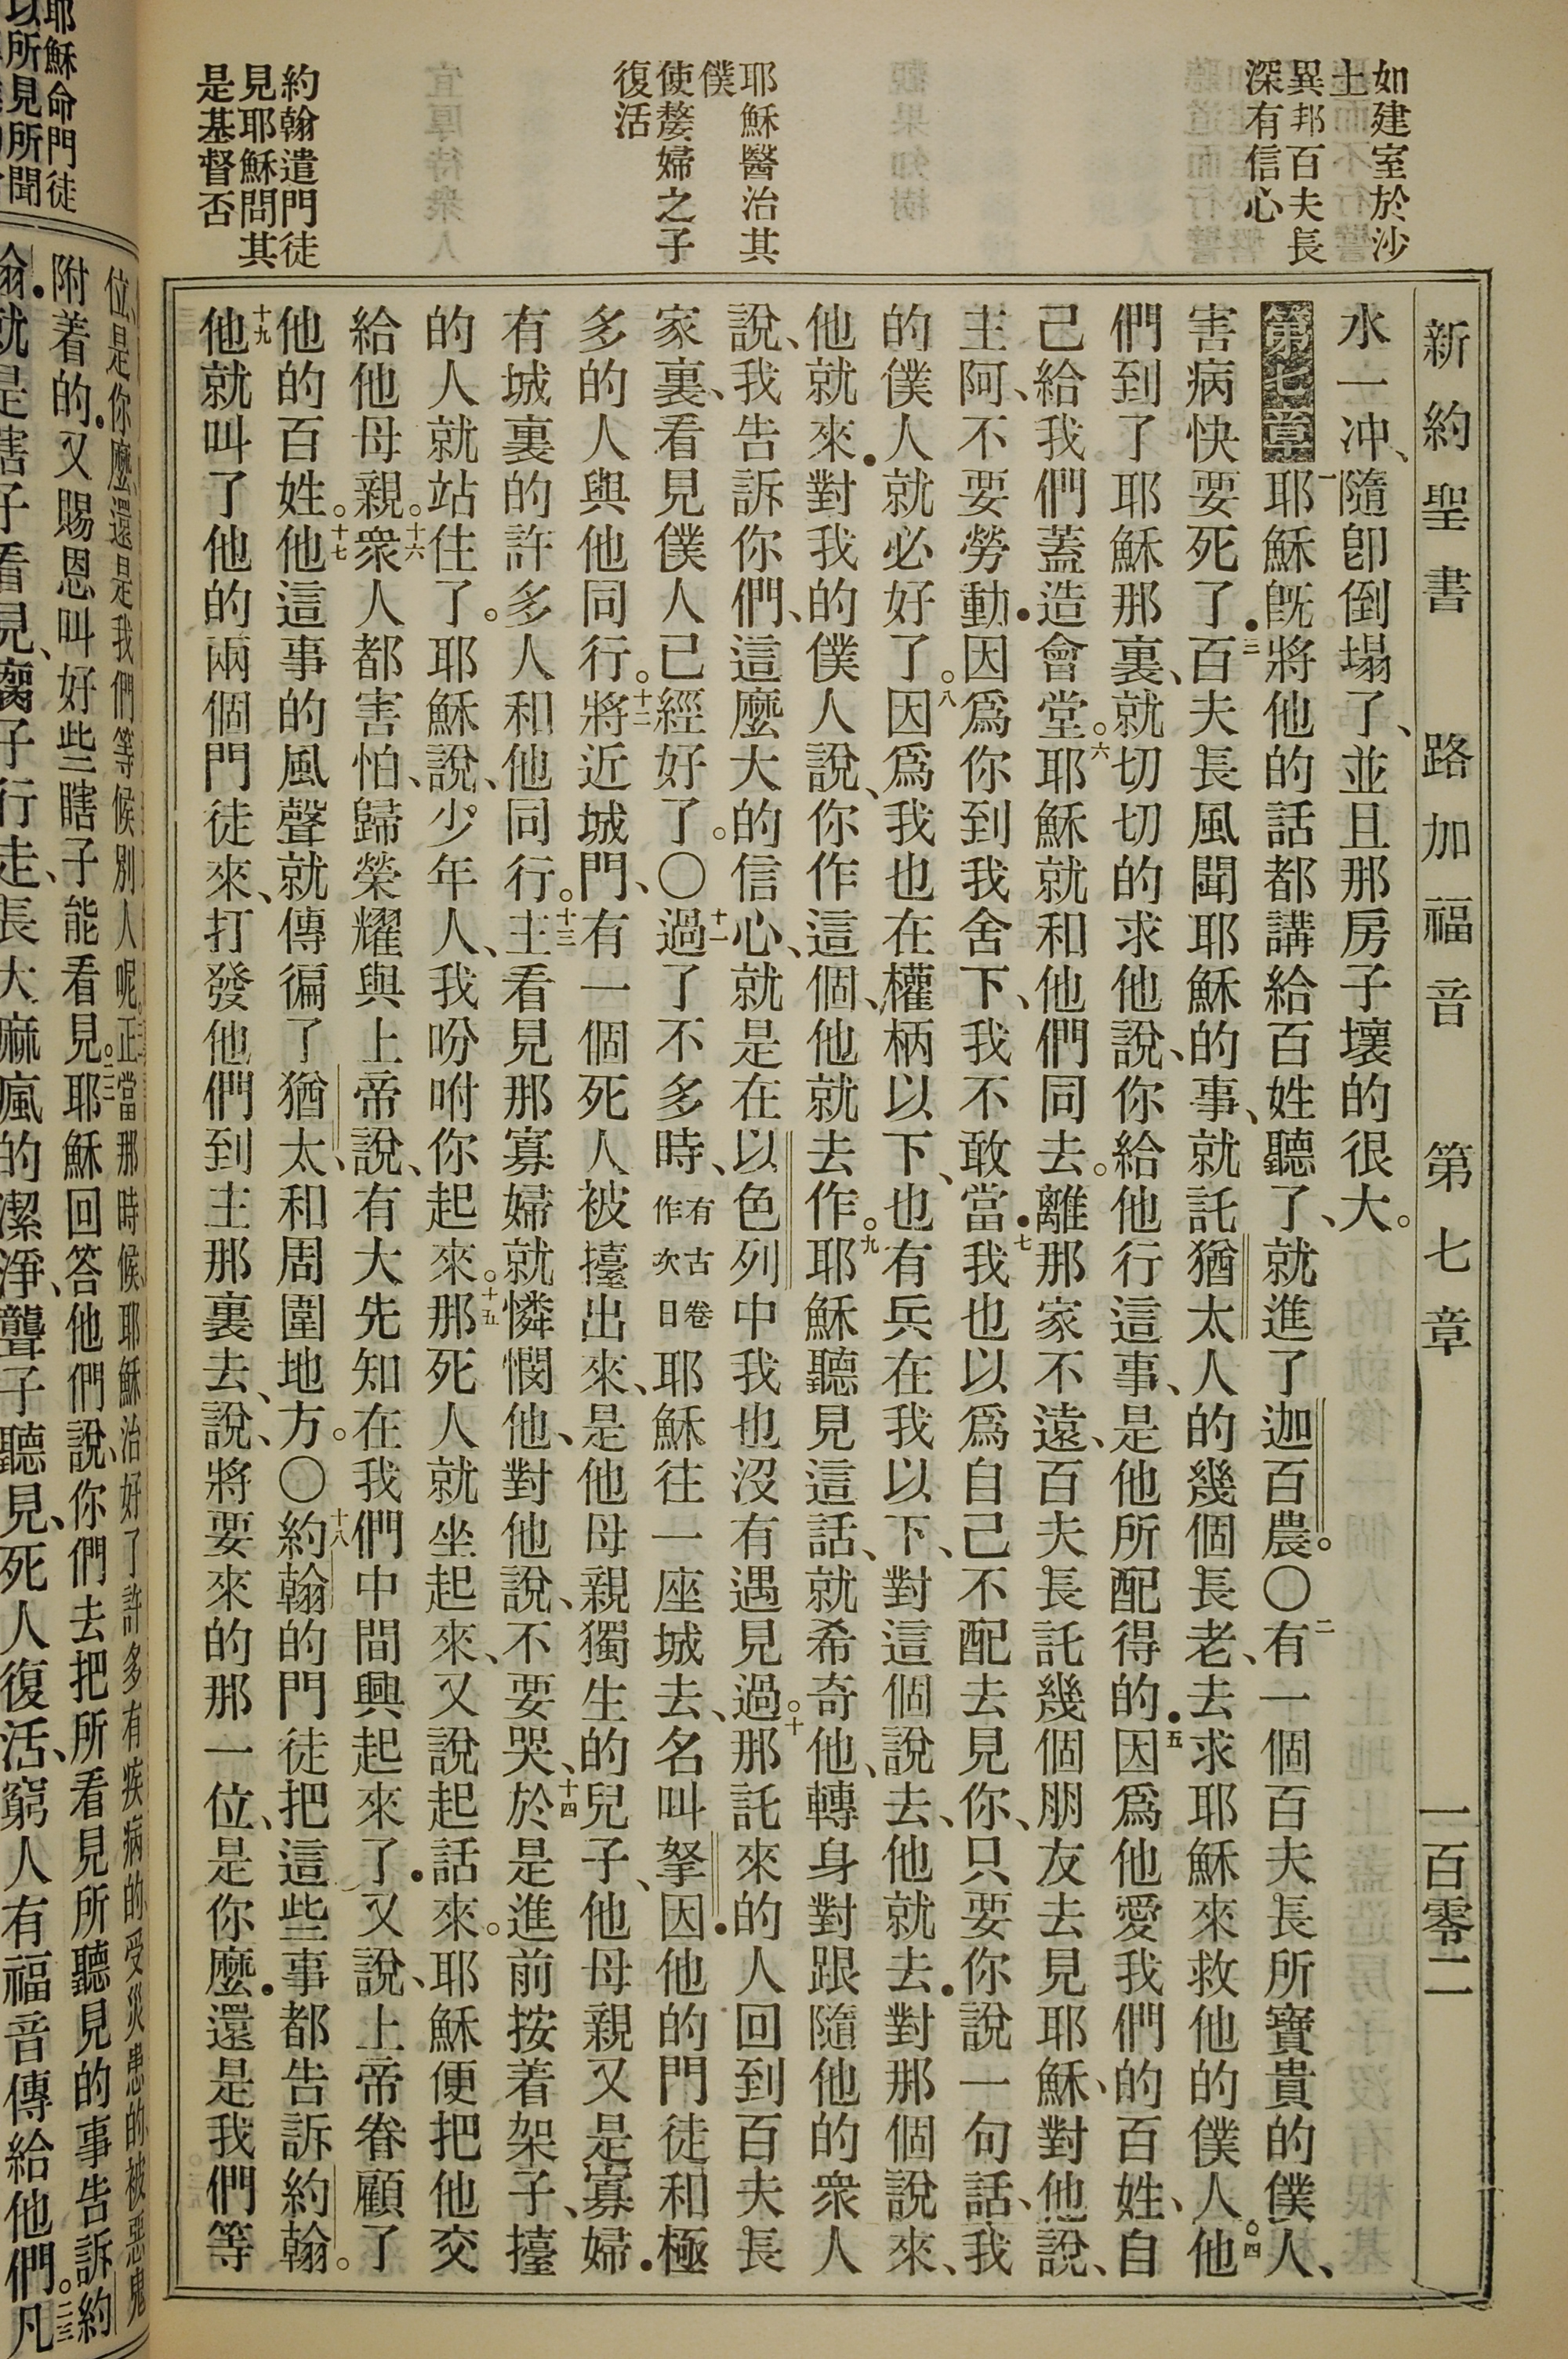 新約聖書 路加福音 第七章 一百零二
如建室於沙
土
異邦百夫長
深有信心
耶穌醫治其
僕
使嫠婦之子
復活
約翰遣門徒
見耶穌問其
是基督否
水一冲、隨卽倒塌了、並且那房子壞的很大。
第七章 一耶穌旣將他的話都講給百姓聽了、就進了迦百農。〇二有一個百夫長所寶貴的僕人、
害病快要死了．三百夫長風聞耶穌的事、就託猶太人的幾個長老、去求耶穌來救他的僕人。四他
們到了耶穌那裏、就切切的求他說、你給他行這事、是他所配得的．五因爲他愛我們的百姓、自
己給我們蓋造會堂。六耶穌就和他們同去。離那家不遠、百夫長託幾個朋友去見耶穌、對他說、
主阿、不要勞動．因爲你到我舍下、我不敢當．七我也以爲自己不配去見你、只要你說一句話、我
的僕人就必好了。八因爲我也在權柄以下、也有兵在我以下、對這個說去、他就去．對那個說來、
他就來．對我的僕人說、你作這個、他就去作。九耶穌聽見這話、就希奇他、轉身對跟隨他的衆人
說、我告訴你們、這麼大的信心、就是在以色列中我也沒有遇見過。十那託來的人回到百夫長
家裏、看見僕人已經好了。〇十一過了不多時、有古卷作次日耶穌往一座城去、名叫拏因．他的門徒和極
多的人與他同行。十二將近城門、有一個死人被擡出來、是他母親獨生的兒子、他母親又是寡婦．
有城裏的許多人和他同行。十三主看見那寡婦就憐憫他、對他說、不要哭、十四於是進前按着架子、擡
的人就站住了。耶穌說、少年人、我吩咐你起來。十五那死人就坐起來、又說起話來。耶穌便把他交
給他母親。十六衆人都害怕、歸榮耀與上帝說、有大先知在我們中間興起來了．又說、上帝眷顧了
他的百姓。十七他這事的風聲就傳徧了猶太、和周圍地方。〇十八約翰的門徒把這些事都告訴約翰。
十九他就叫了他的兩個門徒來、打發他們到主那裏去、說、將要來的那一位、是你麼．還是我們等
耶穌命門徒
以所見所聞
位、是你麼、還是我們等候別人呢。正當那時候、耶穌治好了許多有疾病的、受災患的、被惡鬼
附着的．又賜恩叫好些瞎子能看見。二二耶穌回答他們說、你們去把所看見所聽見的事告訴約
翰．就是瞎子看見、瘸子行走、長大麻瘋的潔淨、聾子聽見、死人復活、窮人有福音傳給他們。二三凡